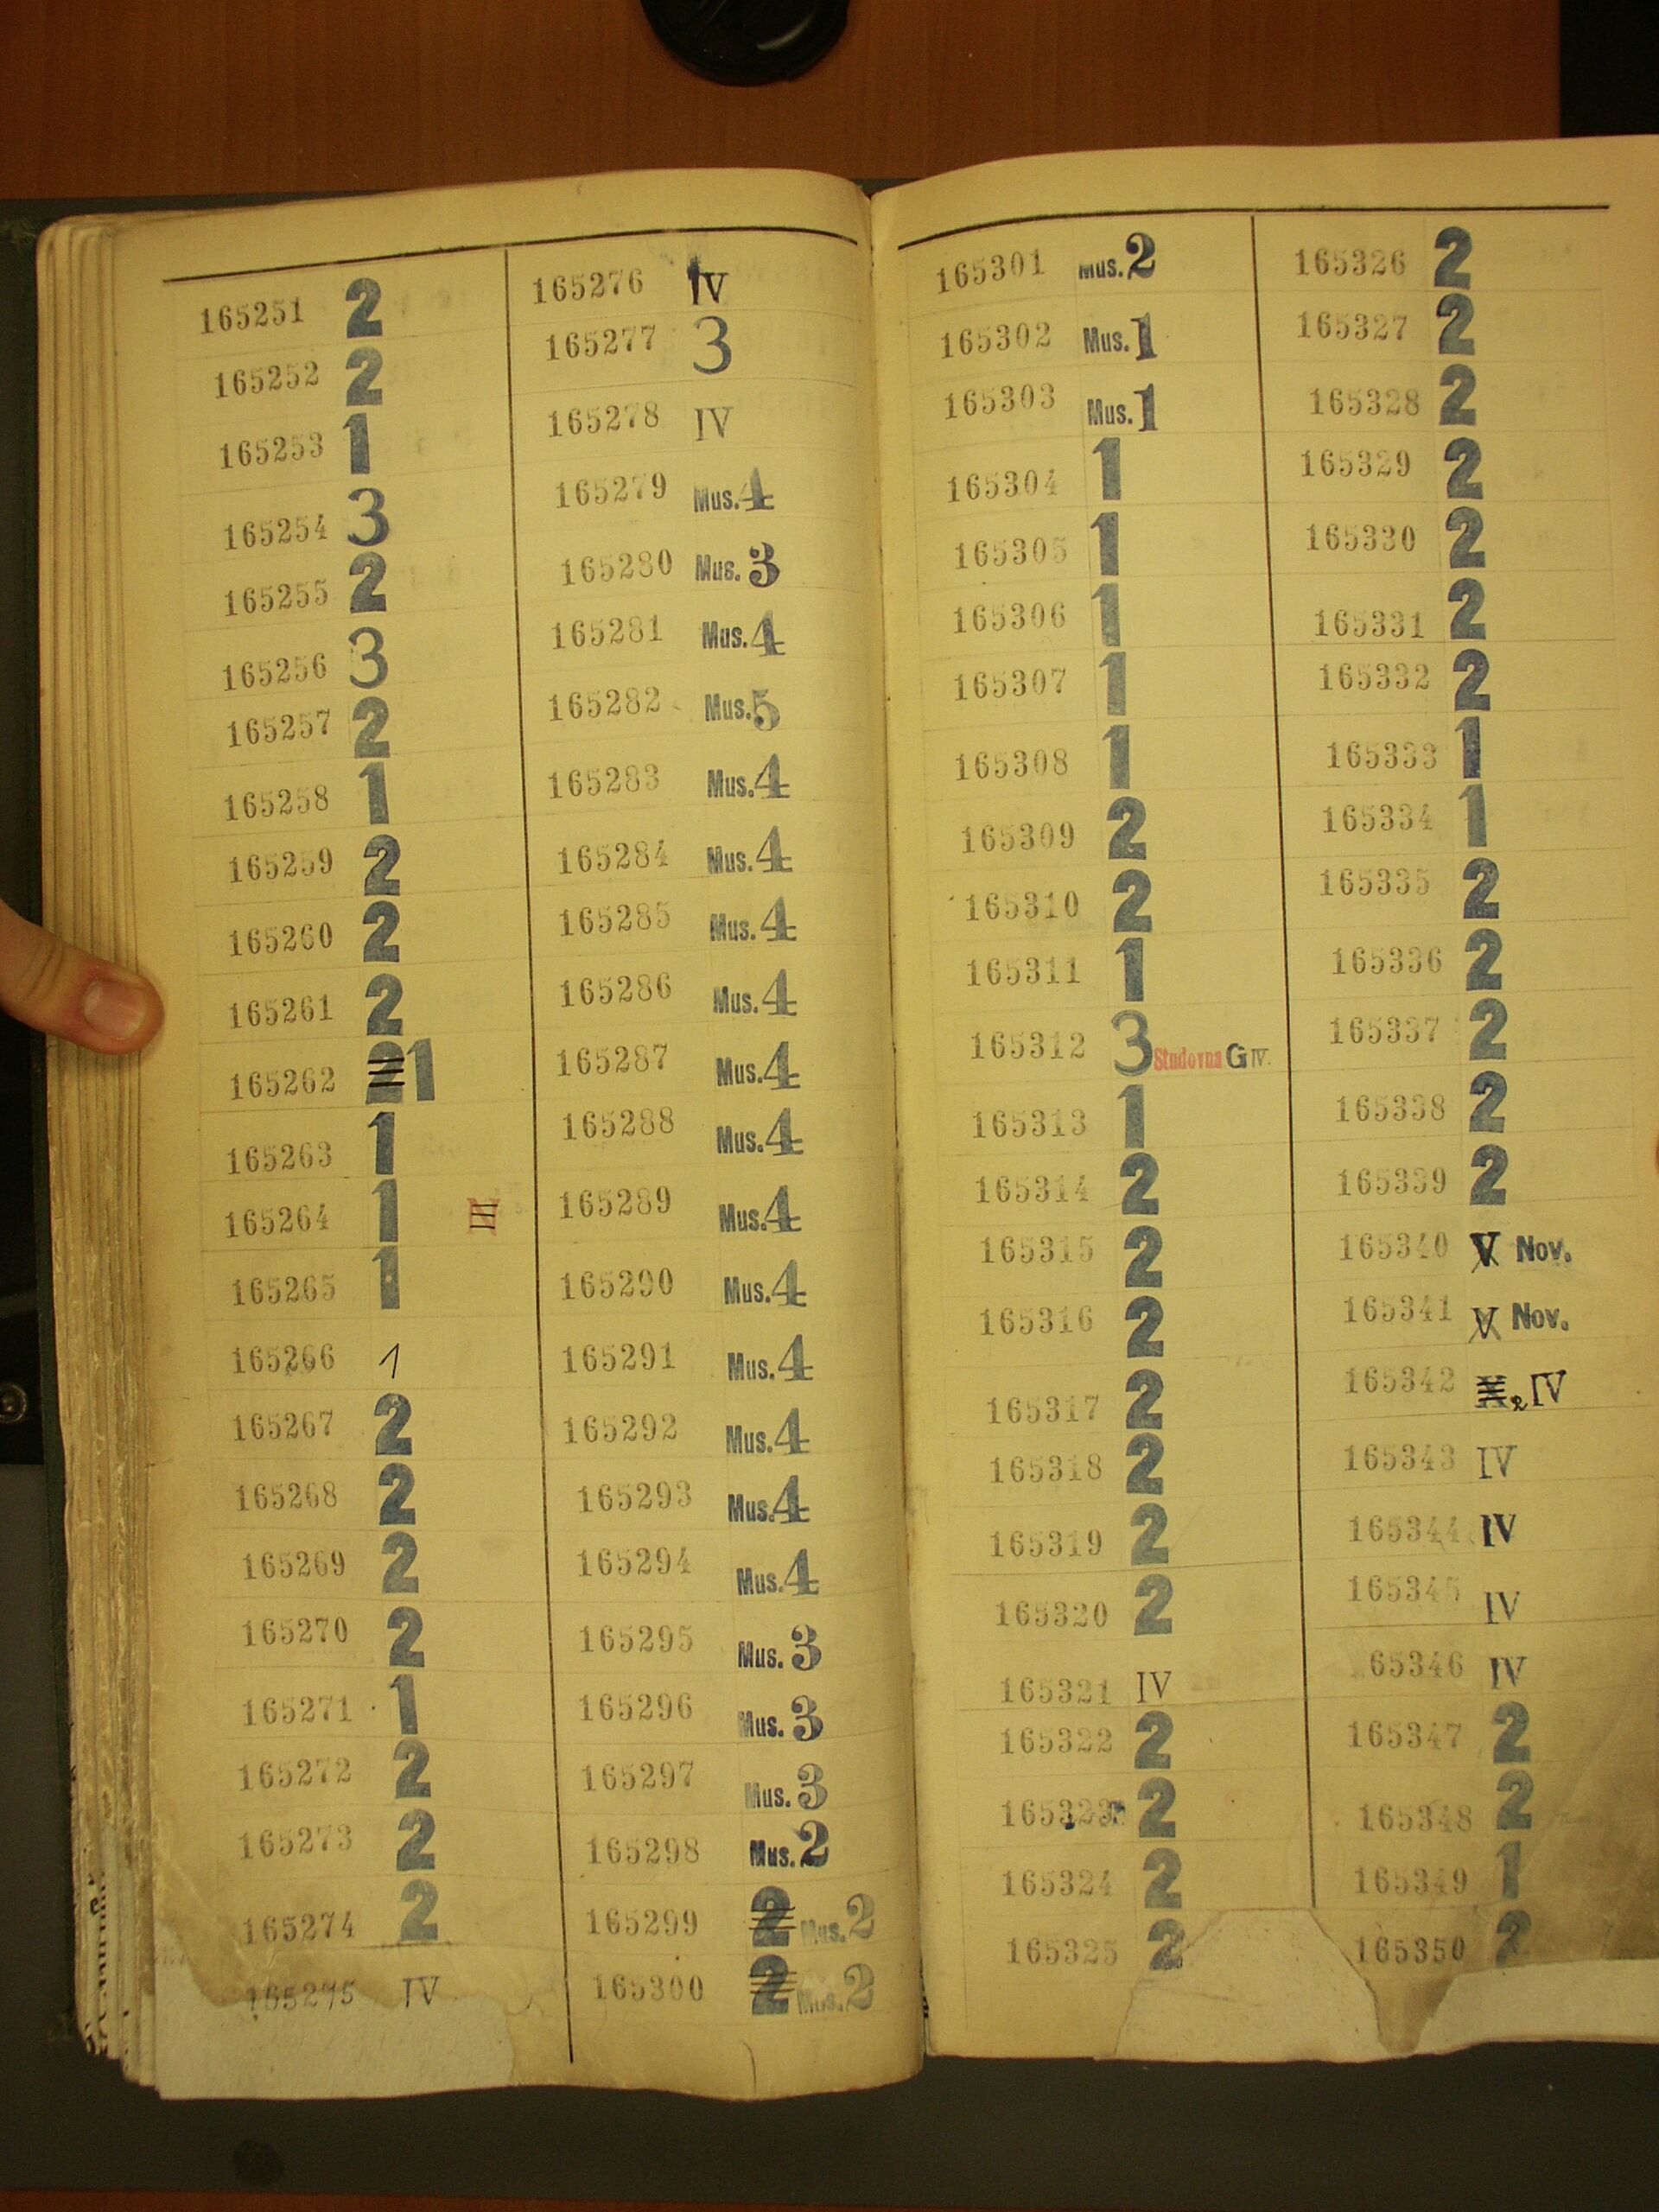 165251 2
165252 2
165253 1
165254 3
165255 2
165256 3
165257 2
165258 1
165259 2
165260 2
165261 2
165262 2 1
165263 1
165264 1 III
165265 1
165266 1
165267 2
165268 2
165269 2
165270 2
165271 1
165272 2
165273 2
165274 2
165275 IV
165276 IV
165277 3
165278 IV
165279 Mus. 4
165280 Mus. 3
165281 Mus. 4
165282 Mus. 5
165283 Mus. 4
165284 Mus. 4
165285 Mus. 4
165286 Mus. 4
165287 Mus. 4
165288 Mus. 4
165289 Mus. 4
165290 Mus. 4
165291 Mus. 4
165292 Mus. 4
165293 Mus. 4
165294 Mus. 4
165295 Mus. 3
165296 Mus. 3
165297 Mus. 3
165298 Mus. 2
165299 2 Mus. 2
165300 2 Mus. 2
165301 Mus. 2
165302 Mus. 1
165303 Mus. 1
165304 1
165305 1
165306 1
165307 1
165308 1
165309 2
165310 2
165311 1
165312 3 Studovna G IV.
165313 1
165314 2
165315 2
165316 2
165317 2
165318 2
165319 2
165320 2
165321 IV
165322 2
165323 2
165324 2
165325 2
165326 2
165327 2
165328 2
165329 2
165330 2
165331 2
165332 2
165333 1
165334 1
165335 2
165336 2
165337 2
165338 2
165339 2
165340 V Nov.
165341 V Nov.
165342 2 IV
165343 IV
165344 IV
165345 IV
65346 IV
165347 2
165348 2
165349 1
165350 2